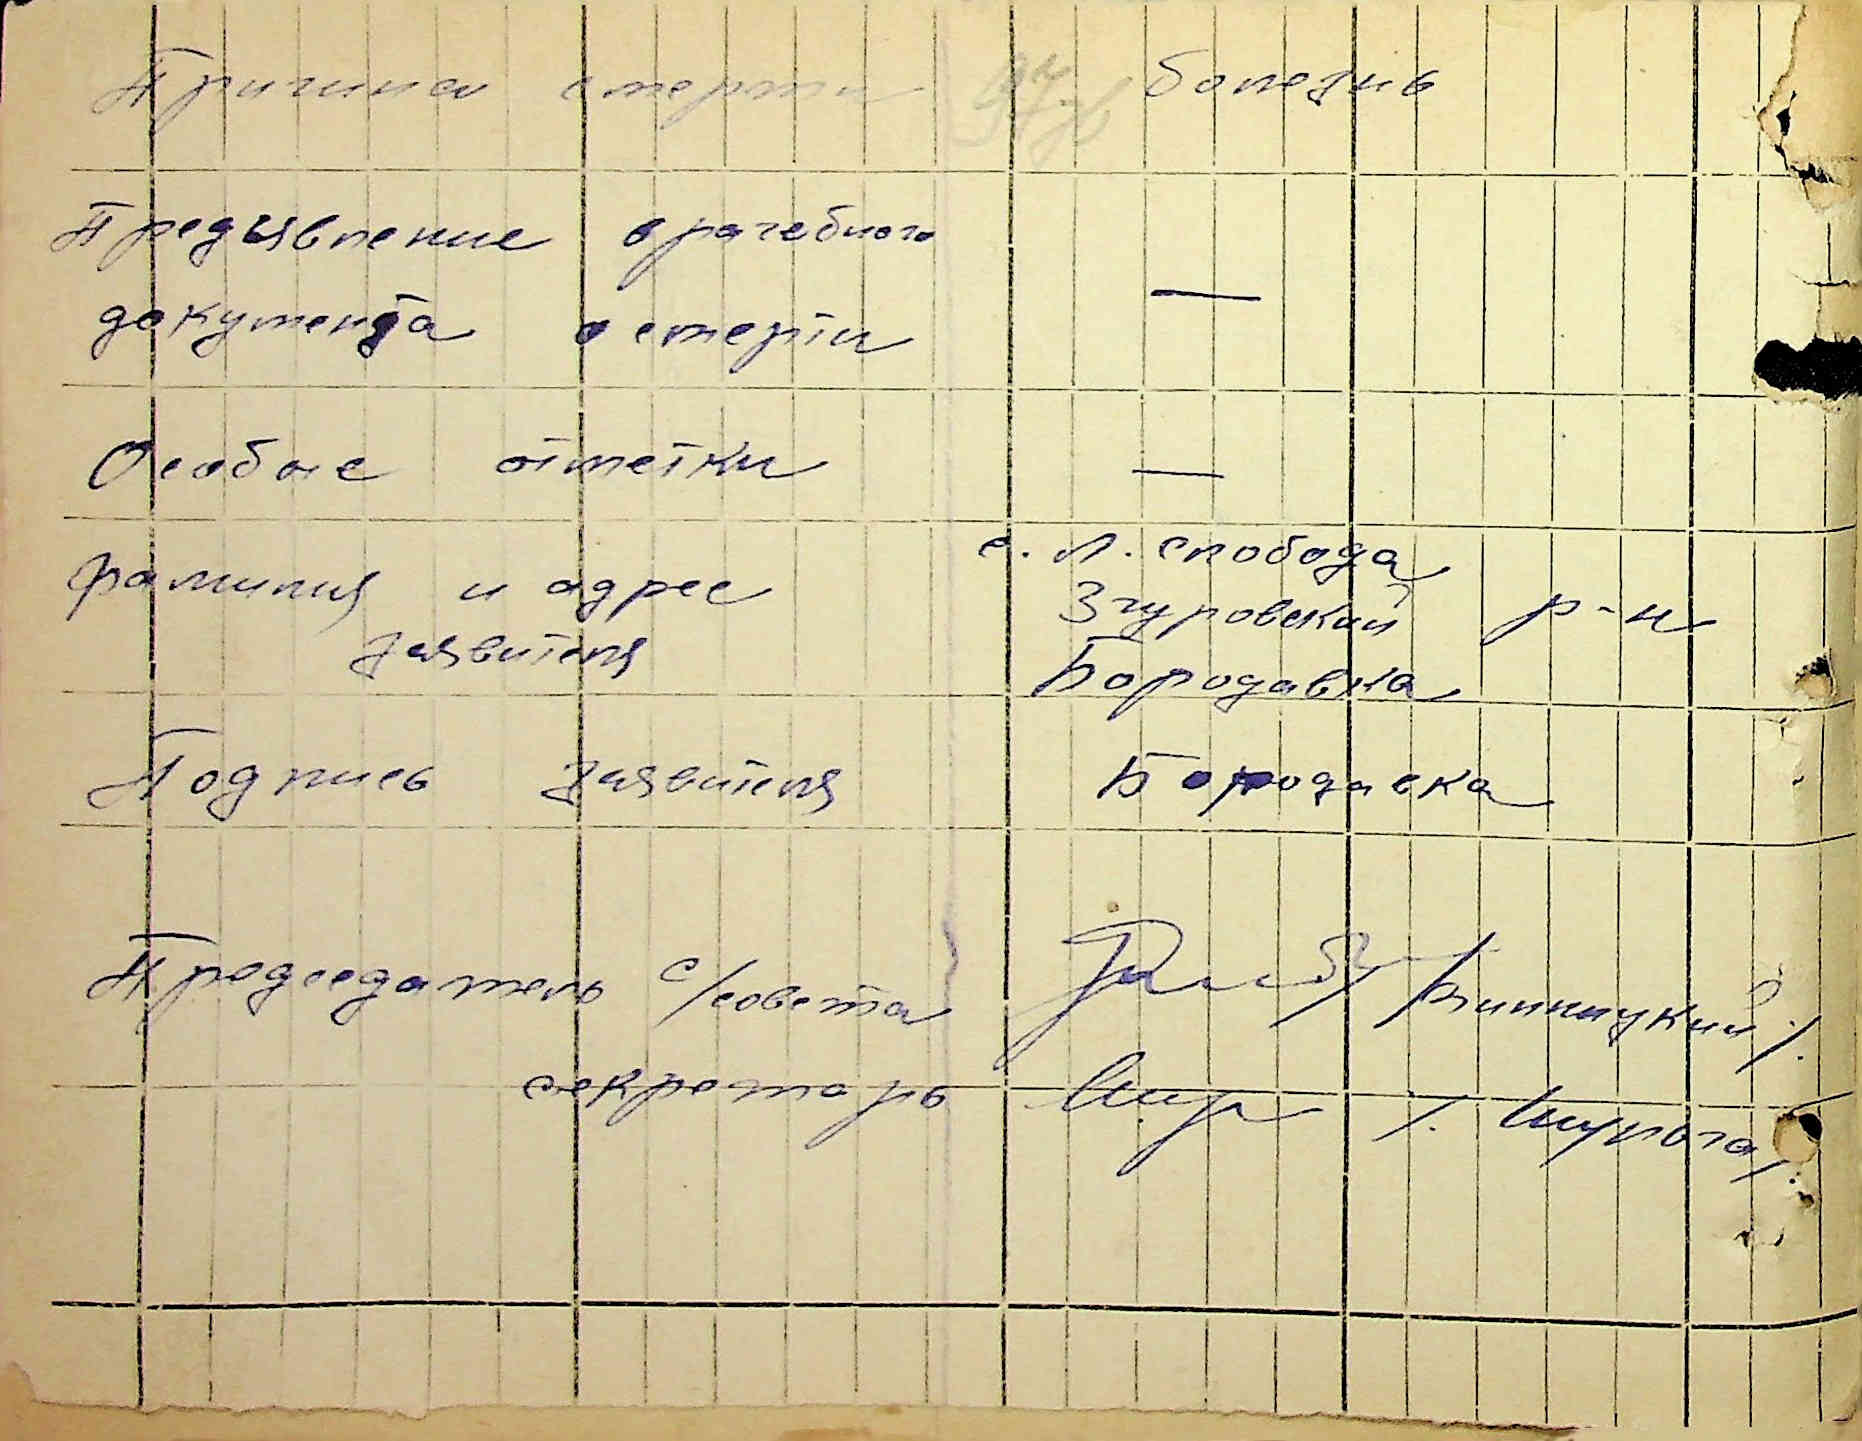 Причина смерти болезнь
Предъявление врачебного
документа о смерти —
Особые отметки —
Фамилия и адрес с. Л. Слобода
Згуровский р-н
заявителя Бородавка
Подпись заявителя Бородавка
Председатель с/совета /Винницкий/.
секретарь /.